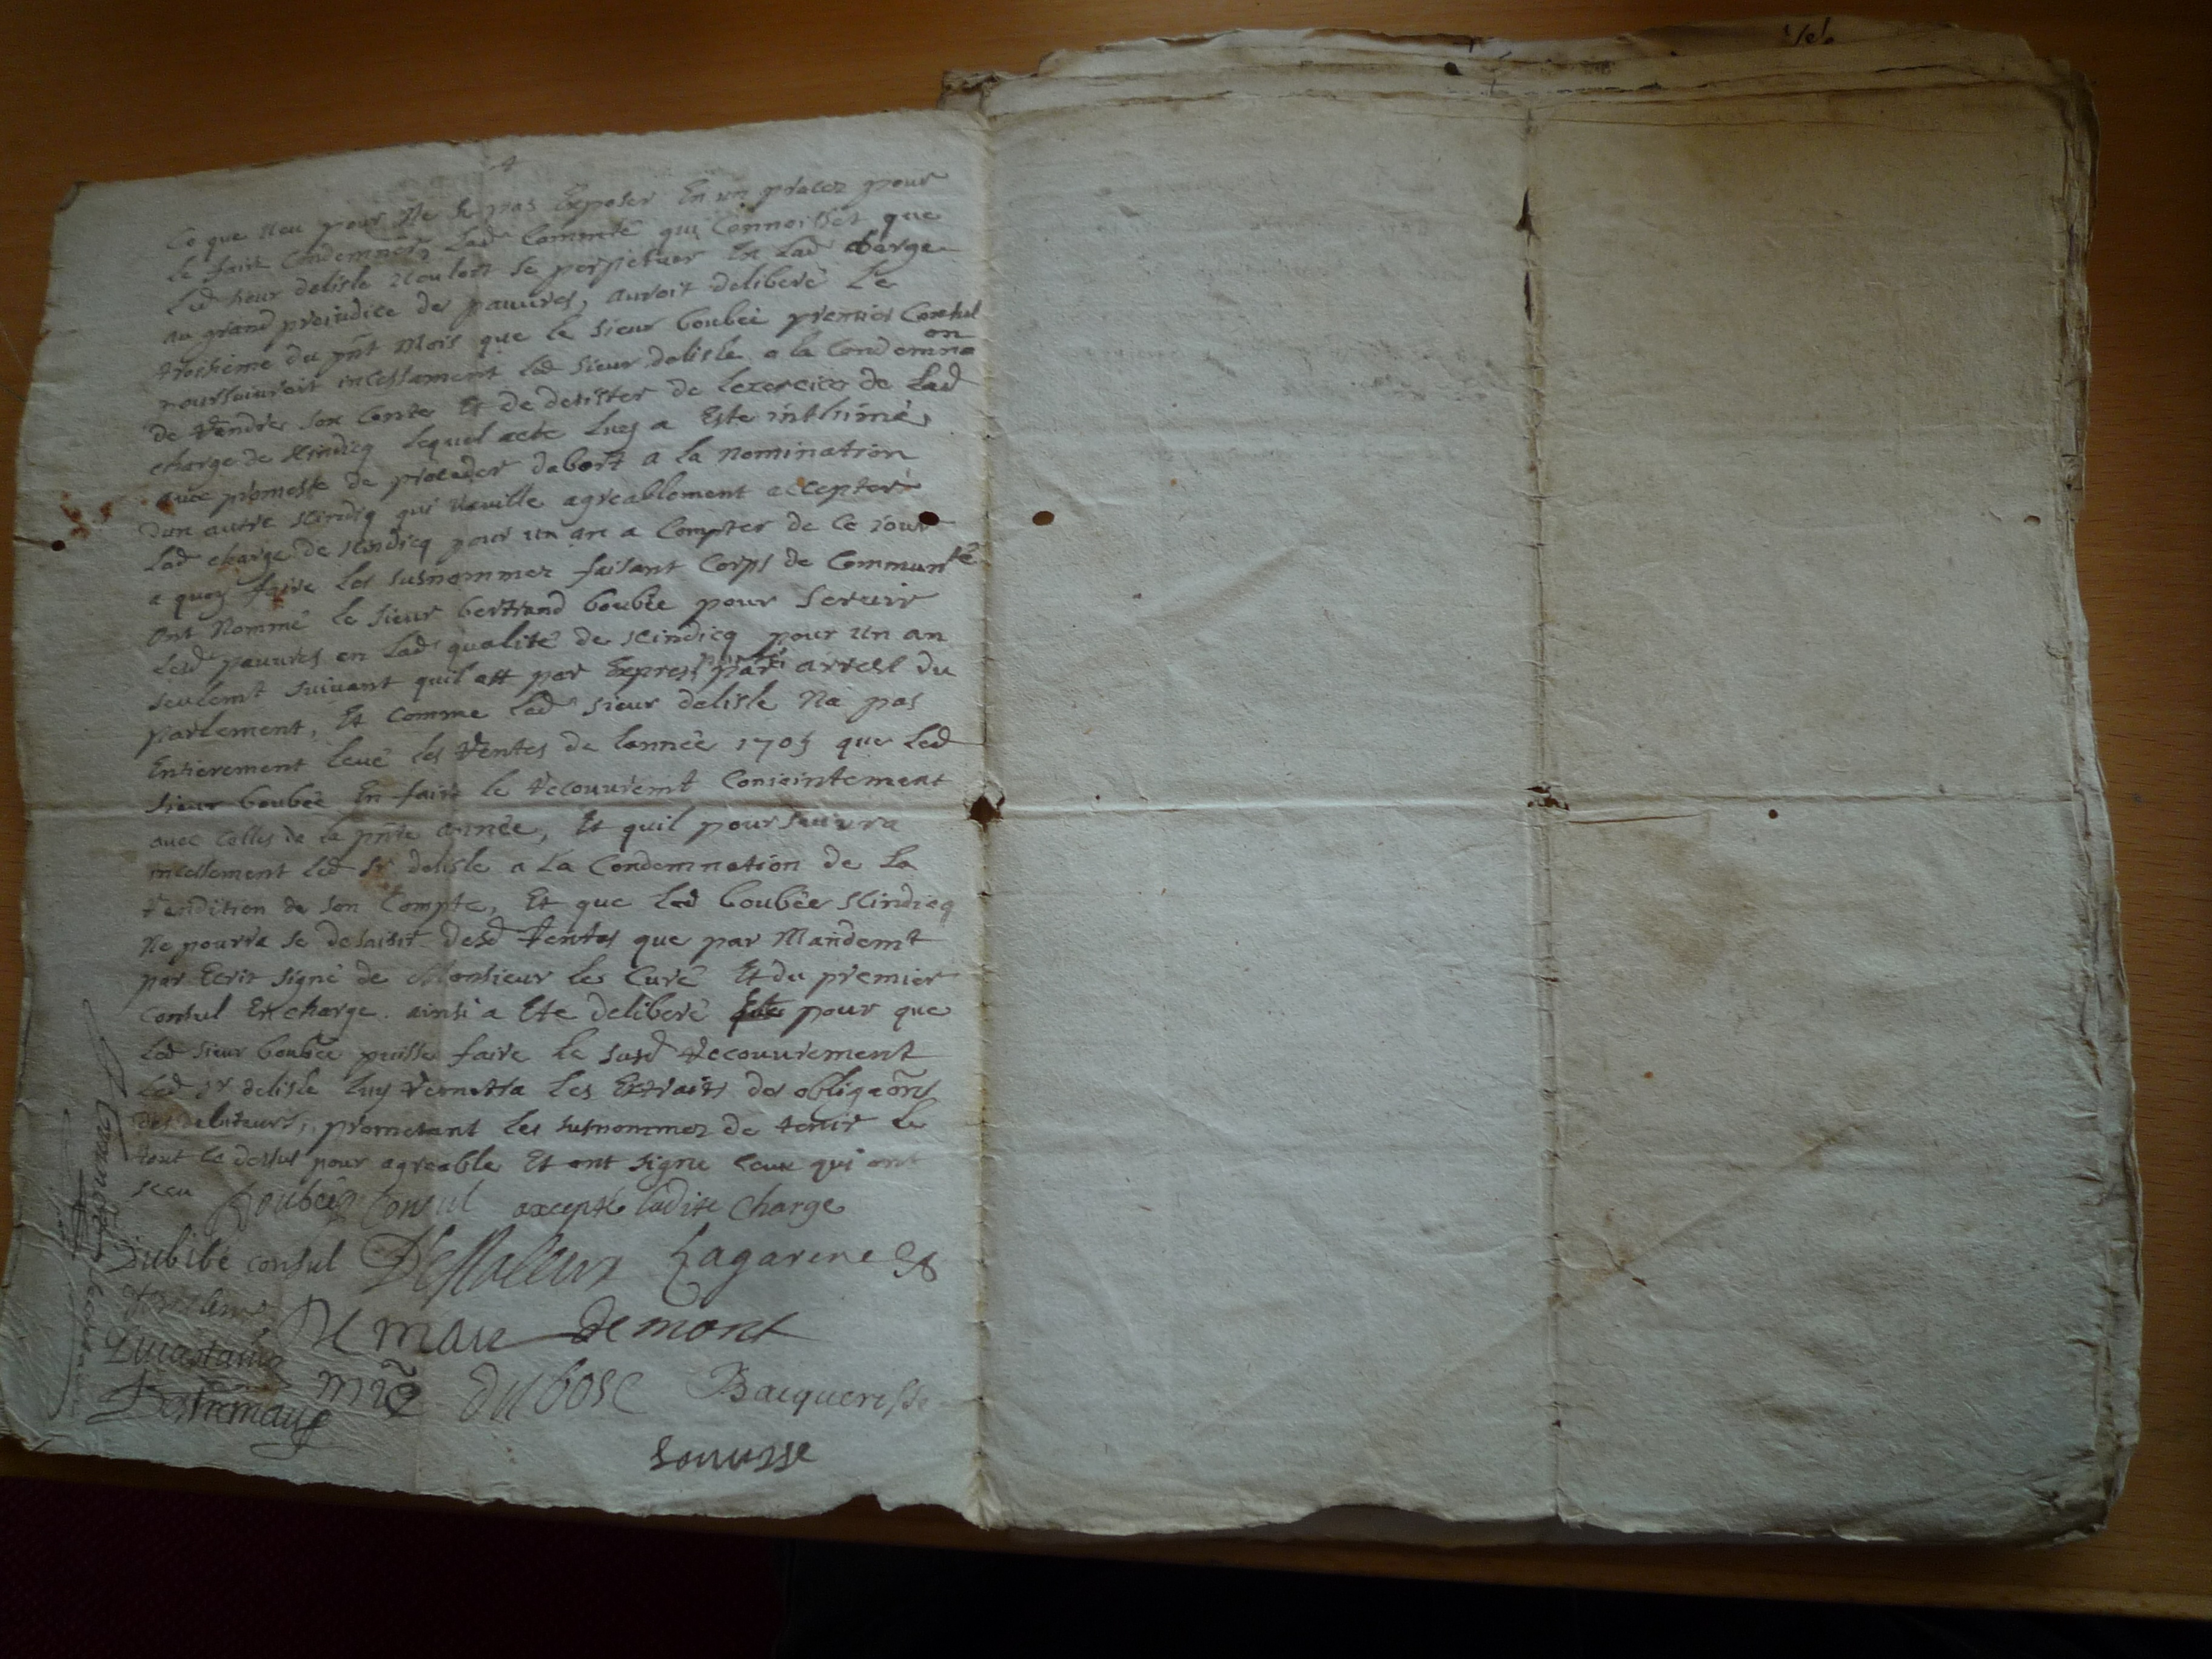 Ce que veu pour ne se pas Exposer En un procez pour
le faire Condemner, Lad Commté qui Connoisset que
Led sieur delisle vouloit se perpetuer En Lad charge
au grand preiudice des pauvres, auroit deliberé Le
troisieme du pñt Mois que le sieur boubée premier Consul
poursuivroit incessament led sieur delisle a la Condemnaon
de Rendre son Conte Et de desister de lexercice de Lad
charge de scindicq lequel acte luy a Este inthimé,
avec promesse de proceder dabort a la nomination
dun autre scindiq qui veuille agreablement accepter
Lad charge de scindicq pour un an a Compter de Ce iour
a quoy faire les susnommez faisant Corps de Communté
ont Nommé le sieur bertrand boubée pour Servir
Lesd pauvres en Lad qualité de scindicq pour un an
seulemt suivant quil est par Expres par arrest du
parlement, Et Comme Led sieur delisle Na pas
Entierement levé les Rentes de lannée 1705 que Led
sieur boubée En faire le Recouvremt Conjointement
avec Celles de la pñte année, Et quil poursuivra
incessement Led sr delisle a La Condemnation de La
Rendition de son Compte, Et que Led boubée scindicq
Ne pourra se desaisir desd Rentes que par Mandemt
par Ecrit signé de Monsieur le Curé Et du premier
Consul En charge. ainsi a Ete deliberé pour que
Led sieur boubée puisse faire le susd Recouvrement
Led sr delisle luy remetra les Extraits des obligaõns
des debiteurs, prometant les susnommez de tenir Le
tout Ce dessus pour agreable Et ont signe Ceux qui ont
sceu
Boubée Consul accepte ladite charge
Dubibe consul Lagarene
demont
dubosc Bacquerisse